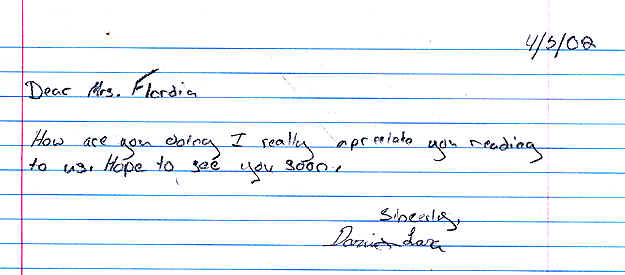 4/5/02
Dear Mrs. Flardia
How are you doing I really apreciate you reading
to us. Hope to see you soon.
Sincerely,
Lara